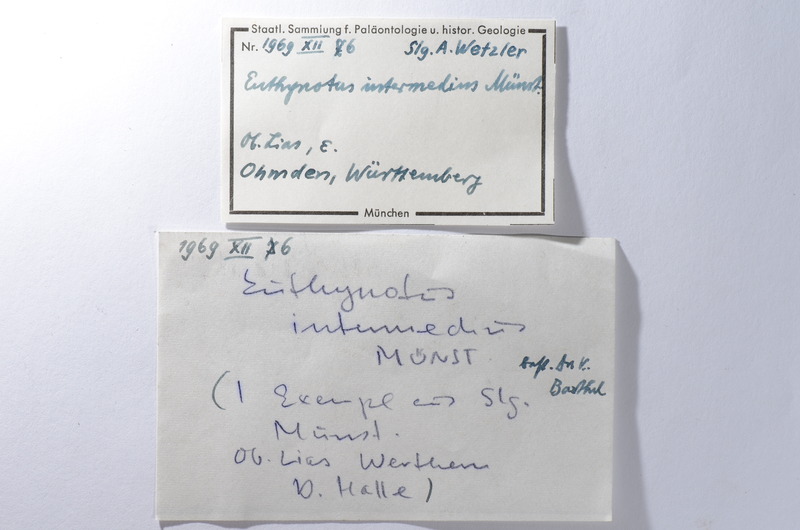 Staatl. Sammlung f. Paläontologie u. histor. Geologie
Nr. 1969 XII 6 Slg. A. Wetzler
Euthynotus intermedius Münst.
Ob. Lias, ε.
Ohmden, Württemberg
München
1969 XII 6
Euthynotus
intermedius
MÜNST.
Barthel
(1 Exempl aus Slg.
Münst.
Ob. Lias Werthern
b. Halle)